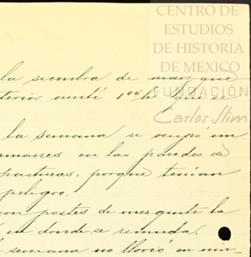 CENTRO DE
ESTUDIOS
DE HISTORIA
DE MEXICO
FUNDACIÓN
Carlos Slim
la siembra de maíz que
terior omití 1 se
la semana se ocupó un
en las paredes de
porque tenían
peligro.
con postes de mezquite la
en donde se remuda.
semana no llovió en nin-